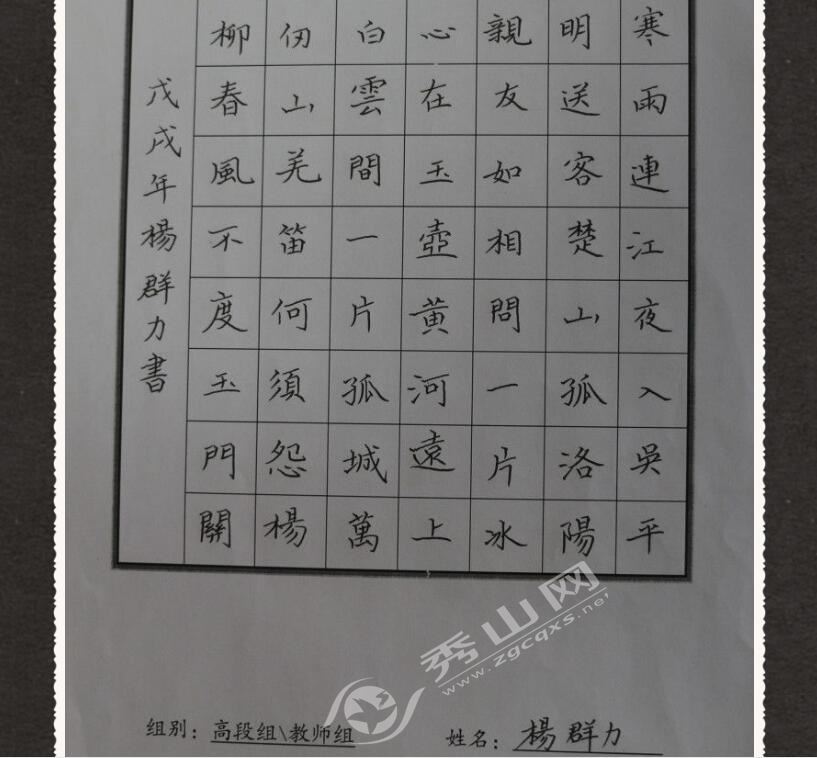 寒雨連江夜入吳平
明送客楚山孤洛陽
親友如相問一片冰
心在玉壺黄河遠上
白雲間一片孤城萬
仞山羌笛何須怨楊
柳春風不度玉門關
戊戌年楊群力書
秀山网
www.zgcqxs.net
组别：高段组\教师组
姓名：楊群力